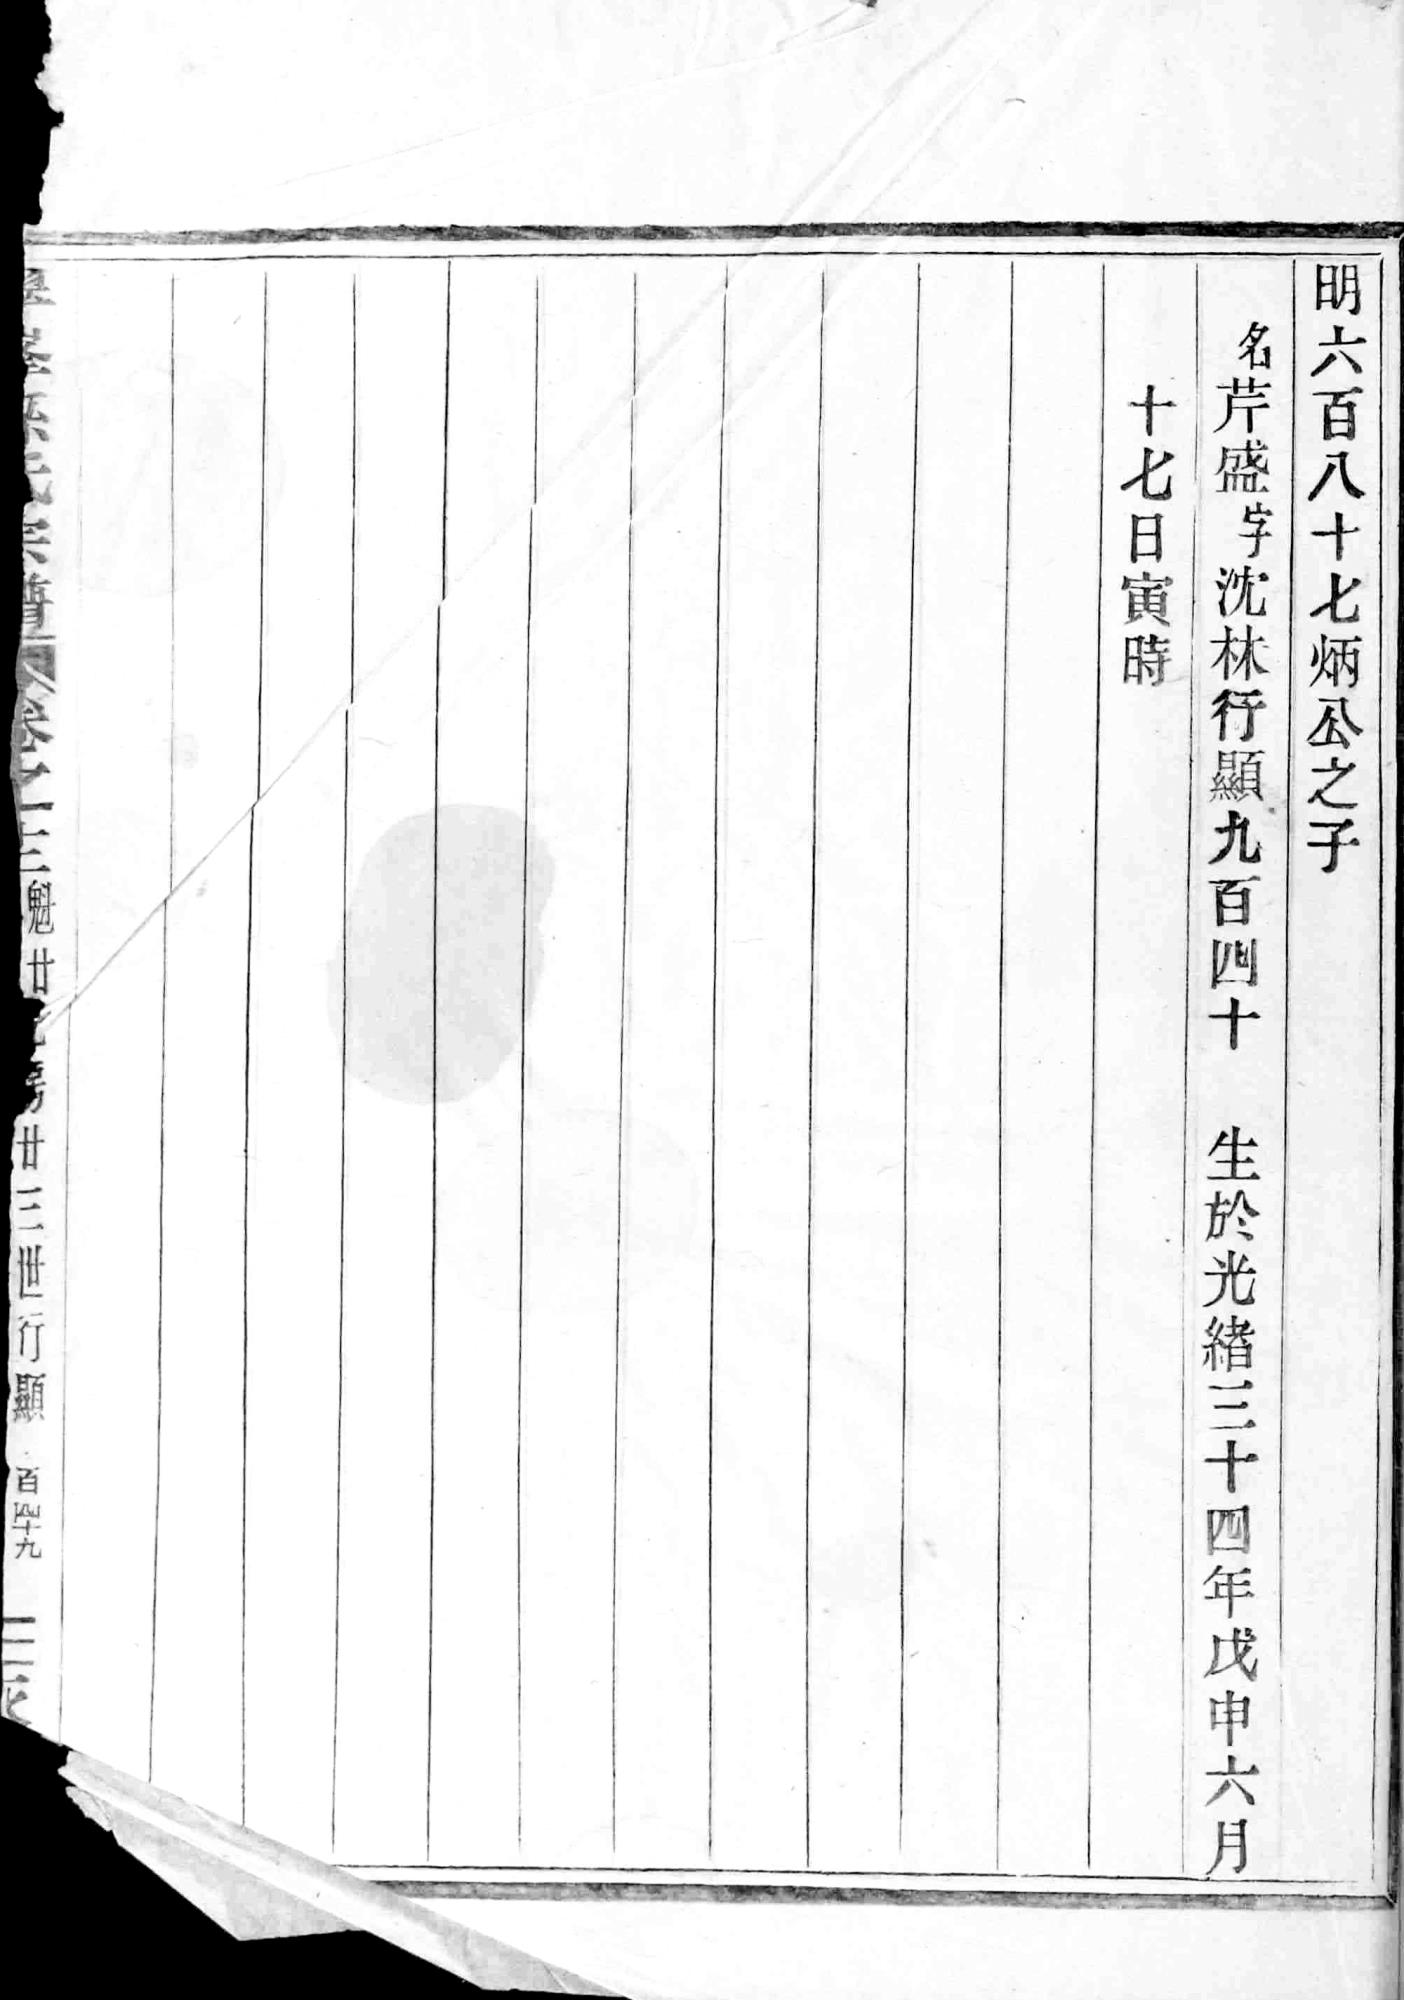 明六百八十七炳公之子
名芹盛字沈林行顯九百四十　生於光緒三十四年戊申六月
十七日寅時
孫氏宗譜　卷之十三魁廿九房廿三世行顯　百四十九